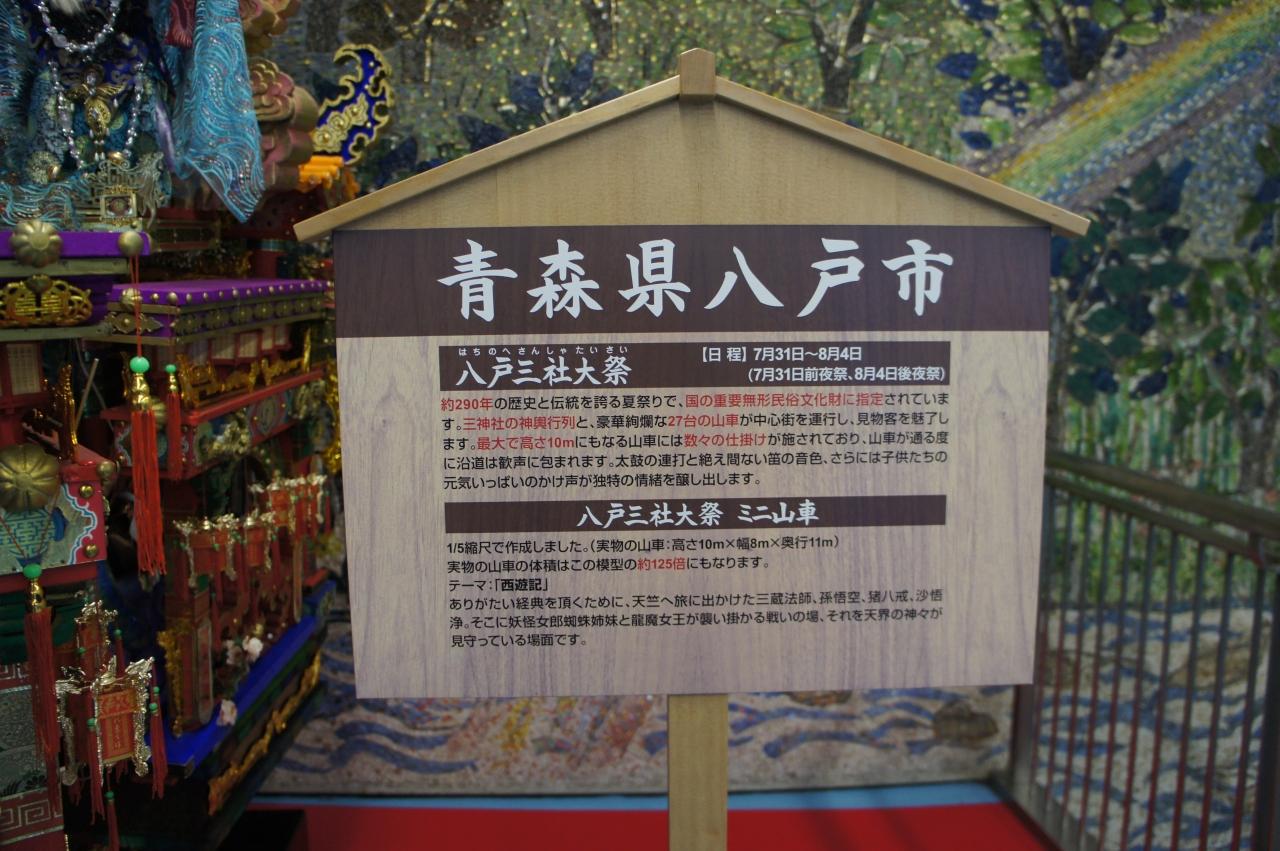 青森県八戸市
はちのへさんしゃたいさい
八戸三社大祭
【日 程】7月31日～8月4日
(7月31日前夜祭、8月4日後夜祭)
約290年の歴史と伝統を誇る夏祭りで、国の重要無形民俗文化財に指定されていま
す。三神社の神輿行列と、豪華絢爛な27台の山車が中心街を運行し、見物客を魅了し
ます。最大で高さ10mにもなる山車には数々の仕掛けが施されており、山車が通る度
に沿道は歓声に包まれます。太鼓の連打と絶え間ない笛の音色、さらには子供たちの
元気いっぱいのかけ声が独特の情緒を醸し出します。
八戸三社大祭 ミニ山車
1/5縮尺で作成しました。(実物の山車:高さ10m×幅8m×奥行11m)
実物の山車の体積はこの模型の約125倍にもなります。
テーマ:「西遊記」
ありがたい経典を頂くために、天竺へ旅に出かけた三蔵法師、孫悟空、猪八戒、沙悟
浄。そこに妖怪女郎蜘蛛姉妹と龍魔女王が襲い掛かる戦いの場、それを天界の神々が
見守っている場面です。